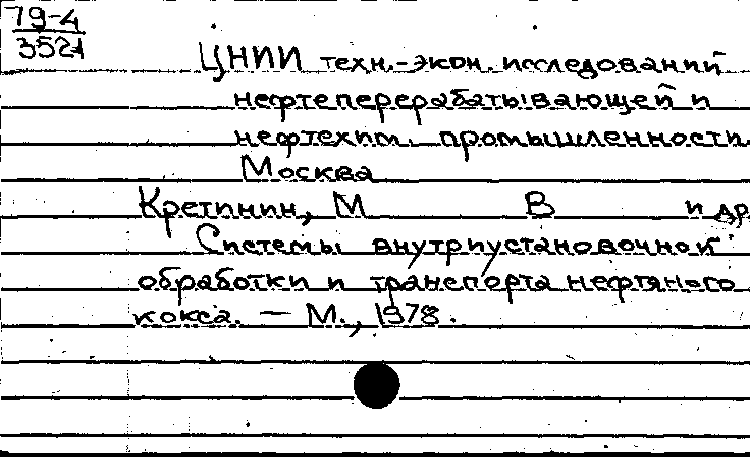 79-4
3521
ЦНИИ техн.-экон. исследований
нефтеперерабатывающей и
нефтехим. промышленности.
Москва
Кретинин, М В и др.
Системы внутриустановочной
обработки и транспорта нефтяного
кокса. — М., 1978.